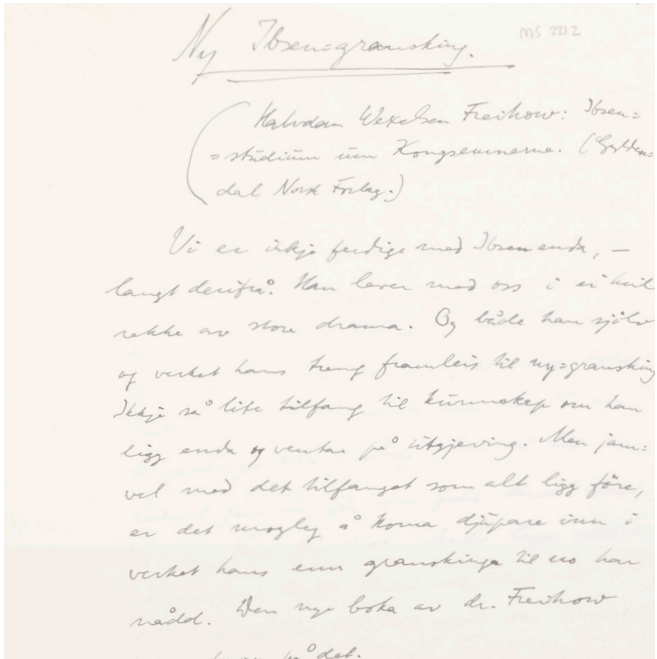 Ny Ibsen=gransking.
MS 2212
(Halvdan Wexelsen Freihow: Ibsen=
=studium um Kongsemnerne. (Gylden=
dal Norsk Forlag.)
Vi er ikkje ferdige med Ibsen enda, –
langt derifrå. Han lever med oss i ei heil
rekke av store drama. Og både han sjølv
og verket hans treng framleis til ny=gransking
Ikkje så lite tilfang til kunnskap om han
ligg enda og ventar på utgjeving. Men jam=
vel med det tilfanget som alt ligg føre,
er det mogleg å koma djupare inn i
verket hans enn granskinga til no har
nådd. Den nye boka av dr. Freihow
på det.